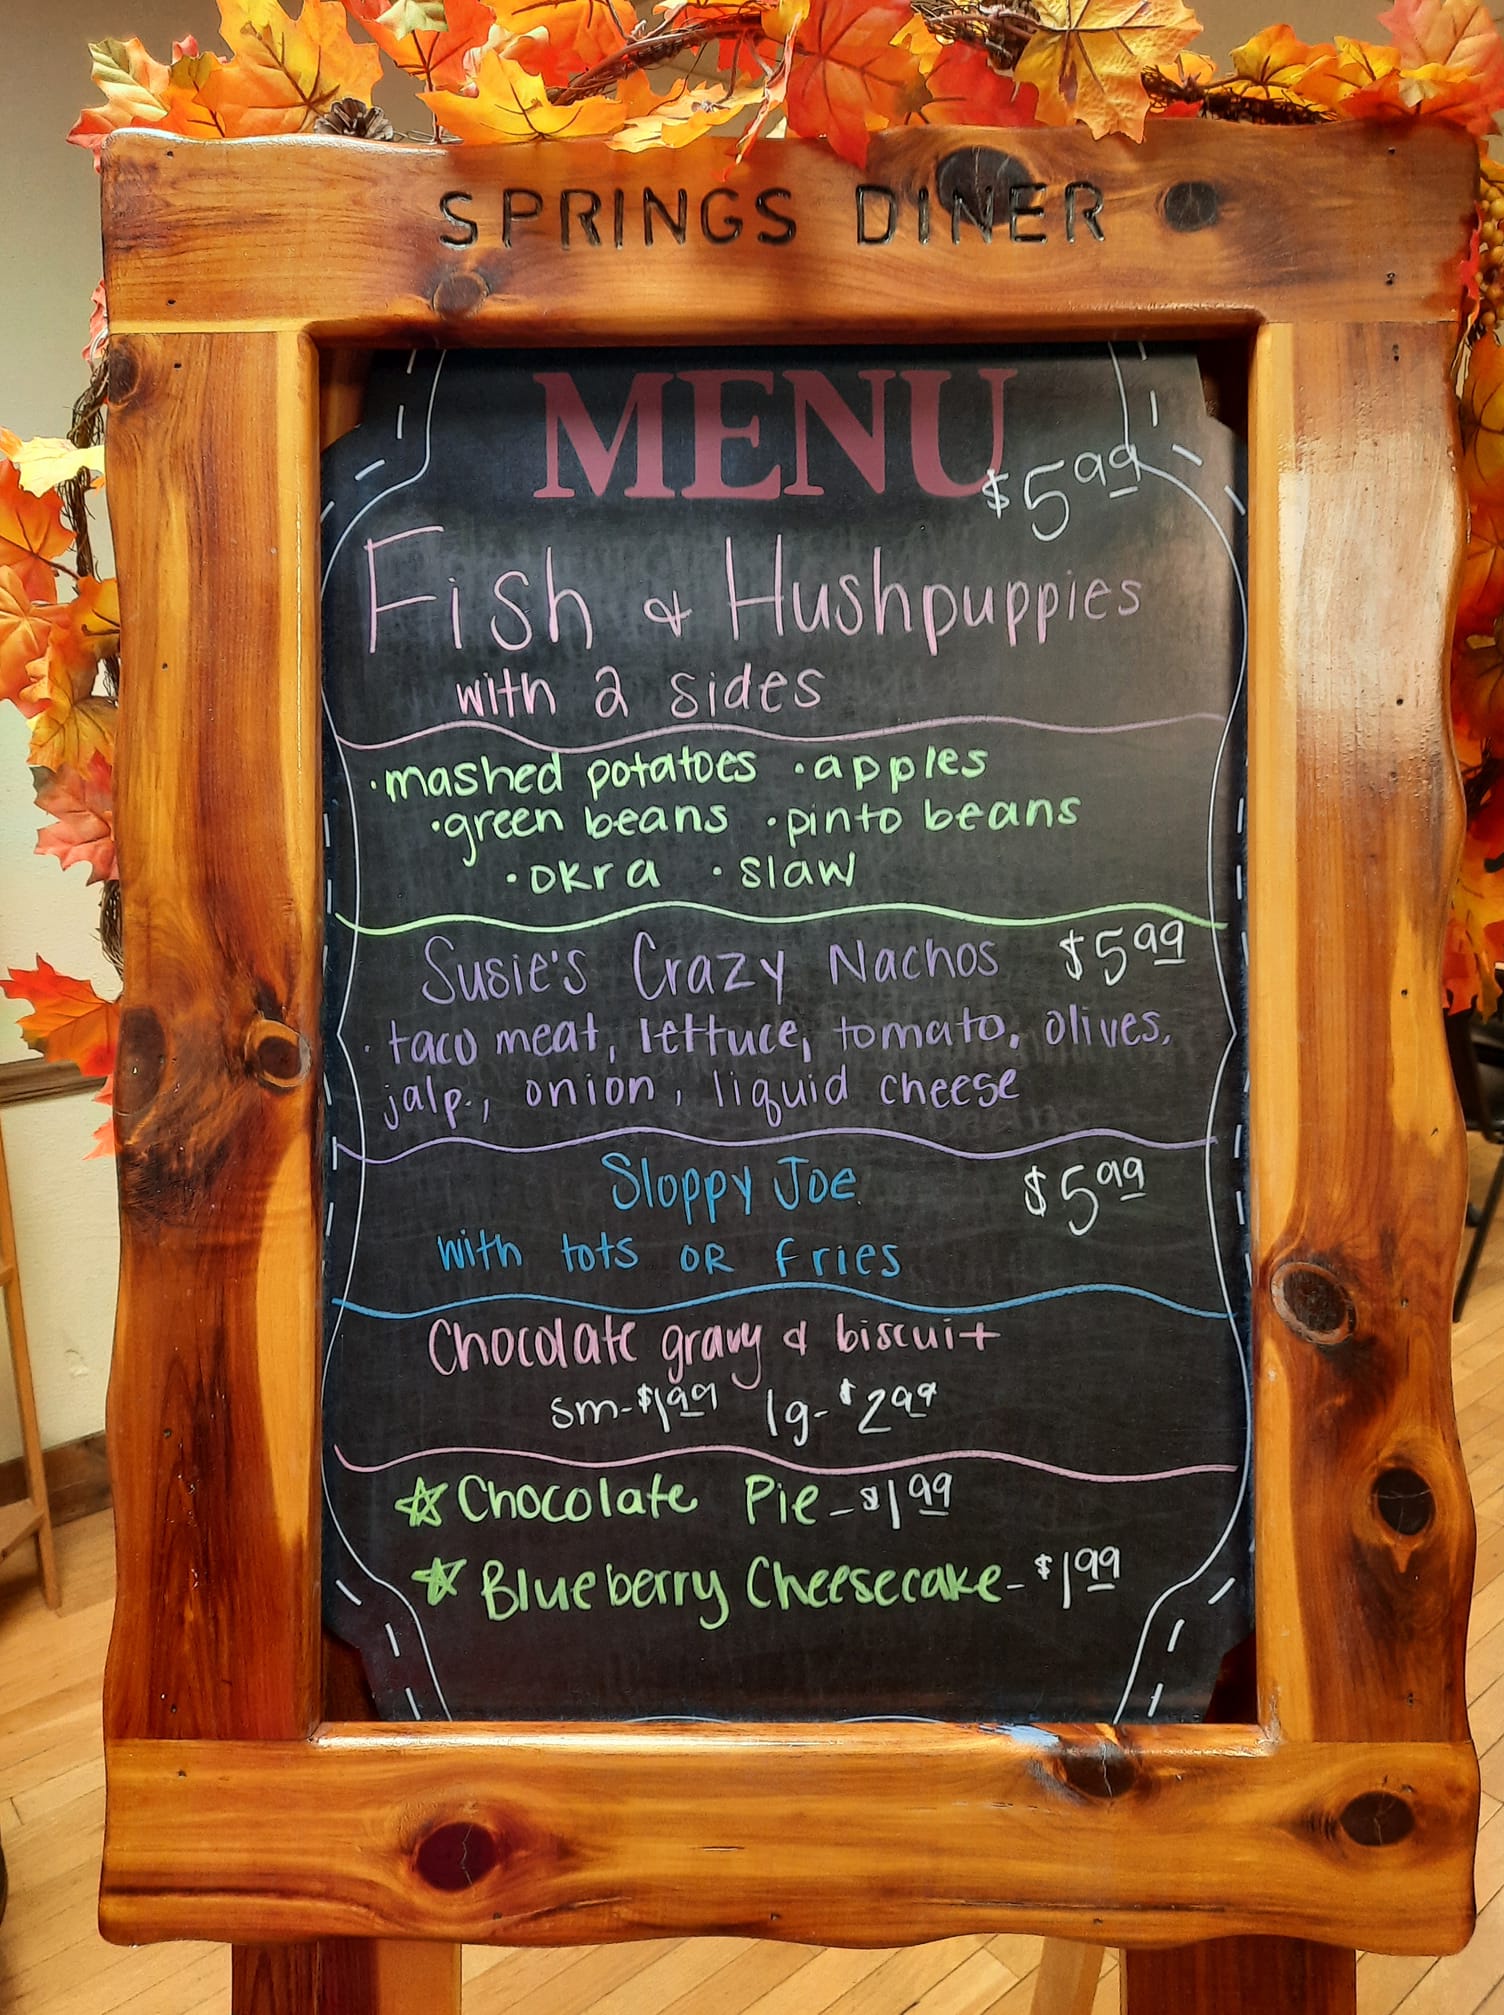 SPRINGS DINER
MENU
$5.99
Fish & Hushpuppies
with 2 sides
·mashed potatoes ·apples
·green beans ·pinto beans
·okra ·slaw
Susie's Crazy Nachos $5.99
·taco meat, lettuce, tomato, olives,
jalp., onion, liquid cheese
Sloppy Joe $5.99
with tots OR fries
Chocolate gravy & biscuit
sm-$1.99 lg-$2.99
☆Chocolate Pie-$1.99
☆Blueberry Cheesecake-$1.99